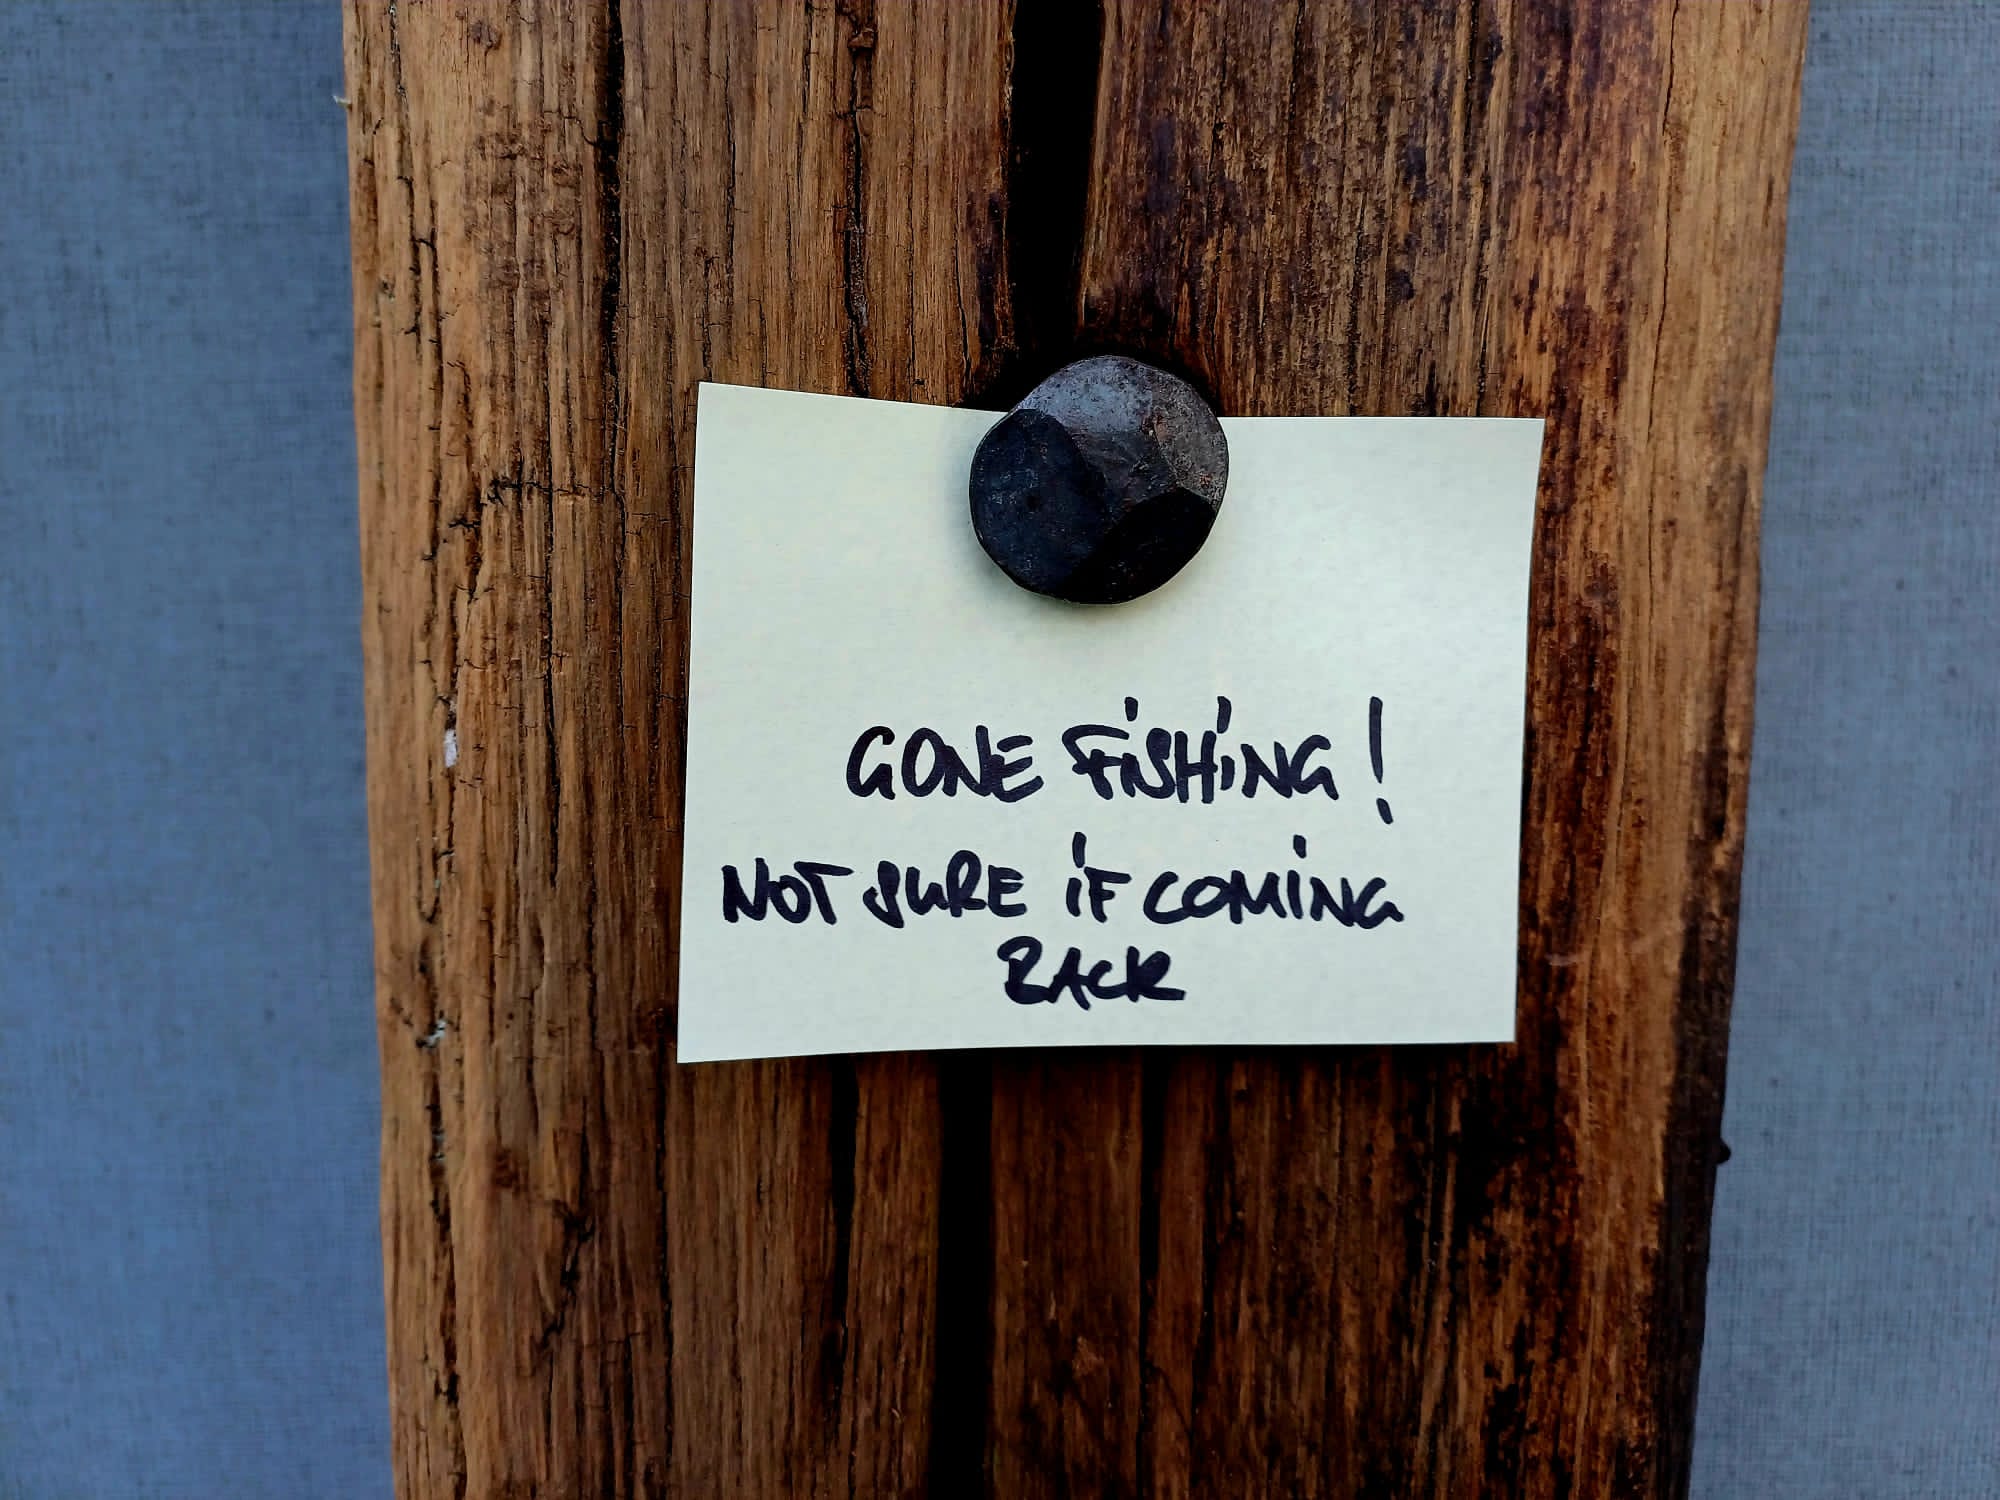 GONE FiSHiNG!
NOT SURE iF COMiNG
BACK